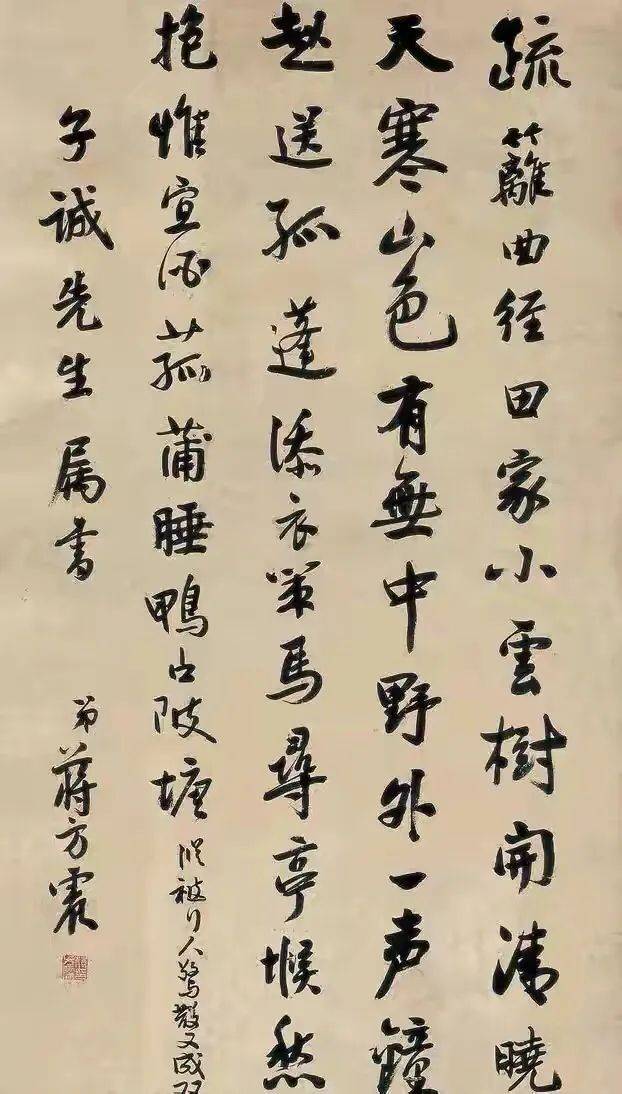 疏籬曲徑田家小雲樹開清曉
天寒山色有無中野外一声鐘
起送孤蓬添衣策馬尋亭堠愁
抱惟宣酒菰蒲睡鴨占陂塘縱被行人驚散又成双
子誠先生属書
弟蔣方震